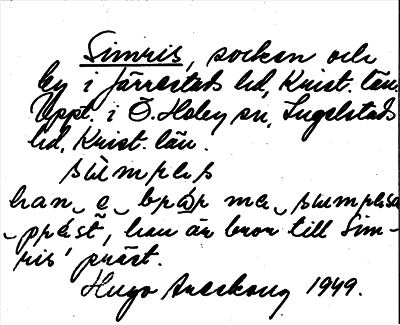 Simris, socken och
by i Järrestads hd, Krist. län.
Uppt. i Ö. Hoby sn, Ingelstads
hd, Krist. län.
sùmpɹɩs
han e brọ́r me
-prést, han är bror till Sim-
ris' präst.
Hugo Areskoug 1949.